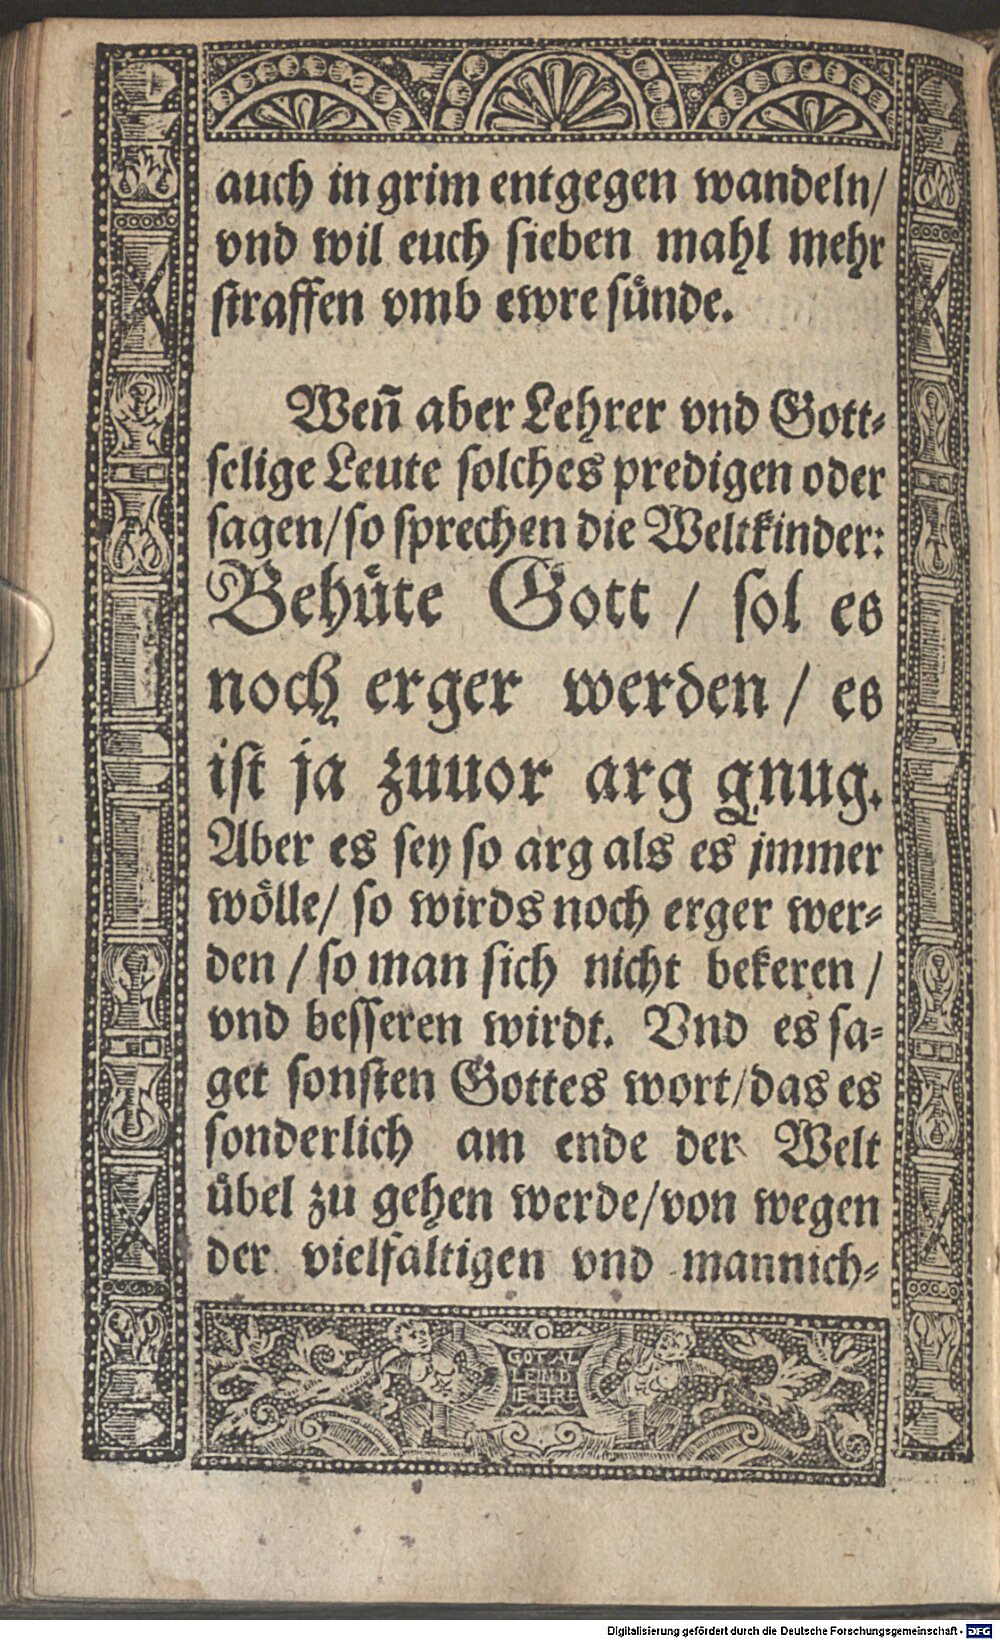 auch in grim entgegen wandeln/
vnd wil euch sieben mahl mehr
straffen vmb ewre suͤnde.
Weñ aber Lehrer vnd Gott-
selige Leute solches predigen oder
sagen/so sprechen die Weltkinder:
Behuͤte Gott / sol es
noch erger werden / es
ist ja zuuor arg gnug.
Aber es sey so arg als es jmmer
woͤlle/ so wirds noch erger wer-
den / so man sich nicht bekeren /
vnd besseren wirdt. Vnd es sa-
get sonsten Gottes wort/das es
sonderlich am ende der Welt
uͤbel zu gehen werde/von wegen
der vielfaltigen vnd mannich-
GOT AL
LEIN D
IE ERE
Digitalisierung gefördert durch die Deutsche Forschungsgemeinschaft - DFG